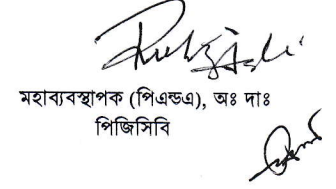 মহাব্যবস্থাপক (পিএন্ডএ), অঃ দাঃ
পিজিসিবি